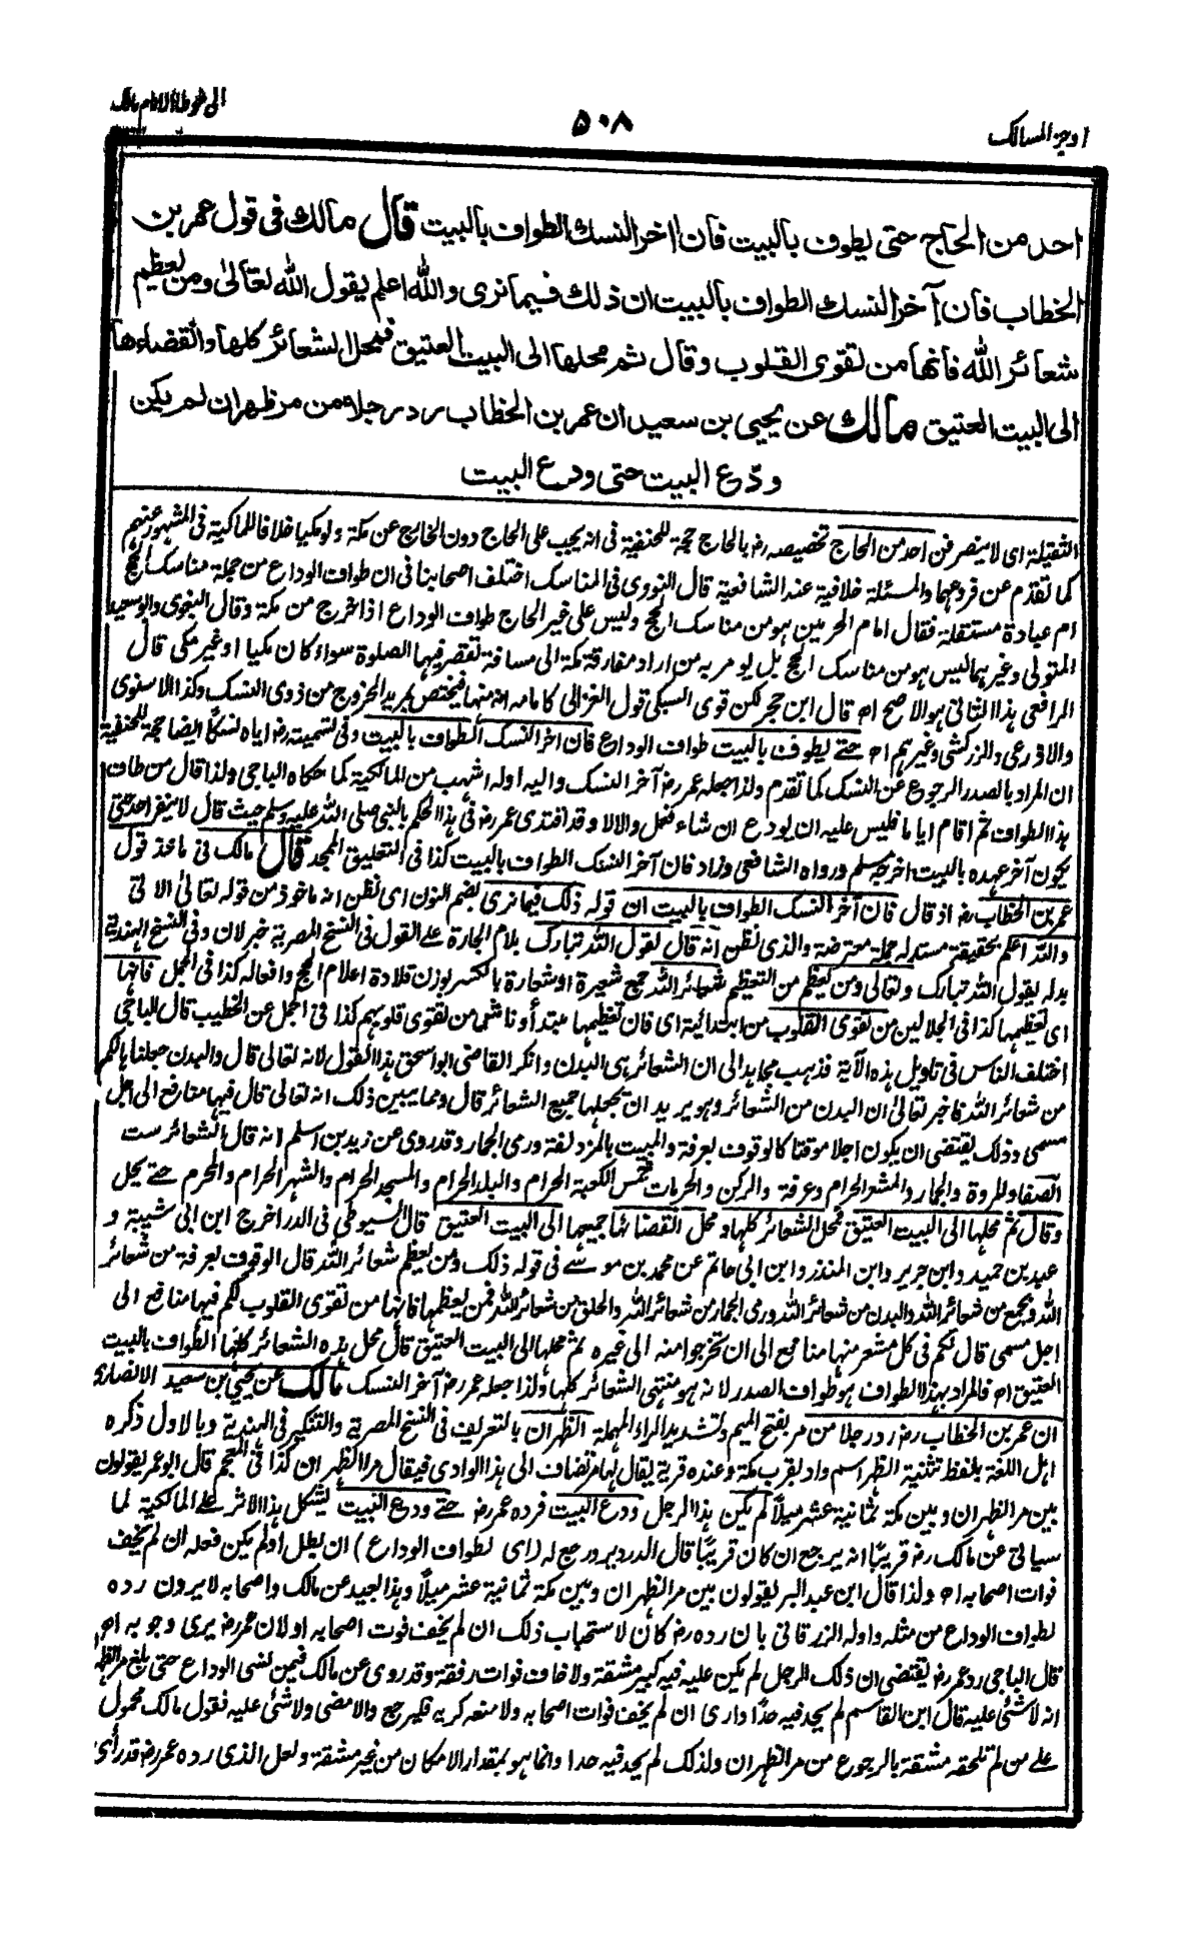 اوجز المسالك
٥٠٨
الى موطأ الامام مالك
احد من الحاج حتى يطوف بالبيت فان اخر النسك الطواف بالبيت قال مالك فى قول عمر بن
الخطاب فان آخر النسك الطواف بالبيت ان ذلك فيما نرى والله اعلم يقول الله تعالى ومن يعظم
شعائر الله فانها من تقوى القلوب وقال ثم محلها الى البيت العتيق فمحل الشعائر كلها وانقضاءها
الى البيت العتيق مالك عن يحيى بن سعيد ان عمر بن الخطاب رد رجلا من مر ظهران لم يكن
ودّع البيت حتى ودع البيت
الثقيلة اى لا ينصرفن احد من الحاج تخصيصه رض بالحاج حجة للحنفية فى انه يجب على الحاج دون الخارج عن مكة ولو مكيا خلافا للمالكية فى المشهور عنهم
كما تقدم عن فروعها والمسئلة خلافية عند الشافعية قال النووى فى المناسك اختلف اصحابنا فى ان طواف الوداع من جملة مناسك الحج
ام عبادة مستقلة فقال امام الحرمين هو من مناسك الحج وليس على غير الحاج طواف الوداع اذا خرج من مكة وقال البغوى وابو سعيد
المتولى وغيرهما ليس هو من مناسك الحج بل يومر به من اراد مفارقة مكة الى مسافة تقصر فيها الصلوة سواء كان مكيا او غير مكى قال
الرافعى هذا الثانى هو الاصح اه قال ابن حجر لكن قوى السبكى قول الغزالى كامامه انه منها فيختص بمريد الخروج من ذوى النسك وكذا الاسنوى
والاذرعى والزركشى وغيرهم اه حتى يطوف بالبيت طواف الوداع فان اخر النسك الطواف بالبيت وفى تسميته رض اياه نسكا ايضا حجة للحنفية
ان المراد بالصدر الرجوع عن النسك كما تقدم ولذا جعله عمر رض آخر النسك واليه اوله اشهب من المالكية كما حكاه الباجى ولذا قال من طاف
هذا الطواف ثم اقام اياما فليس عليه ان يودع ان شاء فعل والا لا وقد اقتدى عمر رض فى هذا الحكم بالنبى صلى الله عليه وسلم حيث قال لا ينفر احد حتى
يكون آخر عهده بالبيت اخرجه مسلم ورواه الشافعى وزاد فان آخر النسك الطواف بالبيت كذا فى التعليق الممجد قال مالك فى ماخذ قول
عمر بن الخطاب رض اذ قال فان آخر النسك الطواف بالبيت ان قوله ذلك فيما نرى بضم النون اى نظن انه ماخوذ من قوله تعالى الاتى
والله اعلم بحقيقة مستدله جملة معترضة والذى نظن انه قال لقول الله تبارك بلام الجارة على القول فى النسخ المصرية خبر لان وفى النسخ الهندية
بدله يقول الله تبارك وتعالى ومن يعظم من التعظيم شعائر الله جمع شعيرة او شعارة بالكسر بوزن قلادة اعلام الحج وافعاله كذا فى الجمل فانها
اى تعظيمها كذا فى الجلالين من تقوى القلوب من ابتدائية اى فان تعظيمها مبتدأ وناشئ من تقوى قلوبهم كذا فى الجمل عن الخطيب قال الباجى
اختلف الناس فى تاويل هذه الآية فذهب مجاهد الى ان الشعائر هى البدن وانكر القاضى ابو اسحق هذا القول لانه تعالى قال والبدن جعلناها لكم
من شعائر الله فاخبر تعالى ان البدن من الشعائر وهو يريد ان يجعلها جميع الشعائر قال ومما يبين ذلك انه تعالى قال فيها منافع الى اجل
مسمى وذلك يقتضى ان يكون اجلا موقتا كالوقوف بعرفة والمبيت بالمزدلفة ورمى الجمار وقد روى عن زيد بن اسلم انه قال الشعائر ست
الصفا والمروة والجمار والمشعر الحرام وعرفة والركن والحرمات خمس الكعبة الحرام والبلد الحرام والمسجد الحرام والشهر الحرام والمحرم حتى يحل
وقال ثم محلها الى البيت العتيق فمحل الشعائر كلها ومحل انقضائها جميعها الى البيت العتيق قال السيوطى فى الدر اخرج ابن ابى شيبة و
عبد بن حميد وابن جرير وابن المنذر وابن ابى حاتم عن محمد بن موسے فى قوله ذلك ومن يعظم شعائر الله قال الوقوف بعرفة من شعائر
الله وبجمع من شعائر الله والبدن من شعائر الله ورمى الجمار من شعائر الله والحلق من شعائر الله فمن يعظمها فانها من تقوى القلوب لكم فيها منافع الى
اجل مسمى قال لكم فى كل مشعر منها منافع الى ان تخرجوا منه الى غيره ثم محلها الى البيت العتيق قال محل هذه الشعائر كلها الطواف بالبيت
العتيق اه فالمراد بهذا الطواف هو طواف الصدر لانه هو منتهى الشعائر كلها ولذا جعله عمر رض آخر النسك مالك عن يحيى بن سعيد الانصارى
ان عمر بن الخطاب رض رد رجلا من مر بفتح الميم وتشديد الراء المهملة الظهران بالتعريف فى النسخ المصرية والتنكير فى الهندية وبالاول ذكره
اهل اللغة بلفظ تثنية الظهر اسم واد بقرب مكة وعنده قرية يقال لها مر تضاف الى هذا الوادى فيقال مر الظهران كذا فى المعجم قال ابو عمر يقولون
بين مر الظهران وبين مكة ثمانية عشر ميلا لم يكن هذا الرجل ودع البيت فرده عمر رض حتى ودع البيت يشكل بهذا الاثر على المالكية لما
سياتى عن مالك رض قريبا انه يرجع ان كان قريبا قال الدردير ورجع له (اى لطواف الوداع) ان بطل او لم يكن فعله ان لم يخف
فوات اصحابه اه ولذا قال ابن عبد البر يقولون بين مر الظهران وبين مكة ثمانية عشر ميلا وهذا بعيد عن مالك واصحابه لا يرون رده
لطواف الوداع من مثله واوله الزرقانى بان رده رض كان لاستحباب ذلك ان لم يخف فوت اصحابه او لان عمر رض يرى وجوبه اه
قال الباجى رد عمر رض يقتضى ان ذلك الرجل لم يكن عليه فيه كبير مشقة ولا خاف فوات رفقة وقد روى عن مالك فيمن نسى الوداع حتى بلغ مر الظهران
انه لا شئ عليه قال ابن القاسم لم يحد فيه حدا وارى ان لم يخف فوات اصحابه ولا منعه كريه فليرجع والا مضى ولا شئ عليه فقول مالك محمول
على من لم تلحقه مشقة بالرجوع من مر الظهران ولذلك لم يحد فيه حدا وانما هو بمقدار الامكان من غير مشقة ولعل الذى رده عمر رض قد رأى